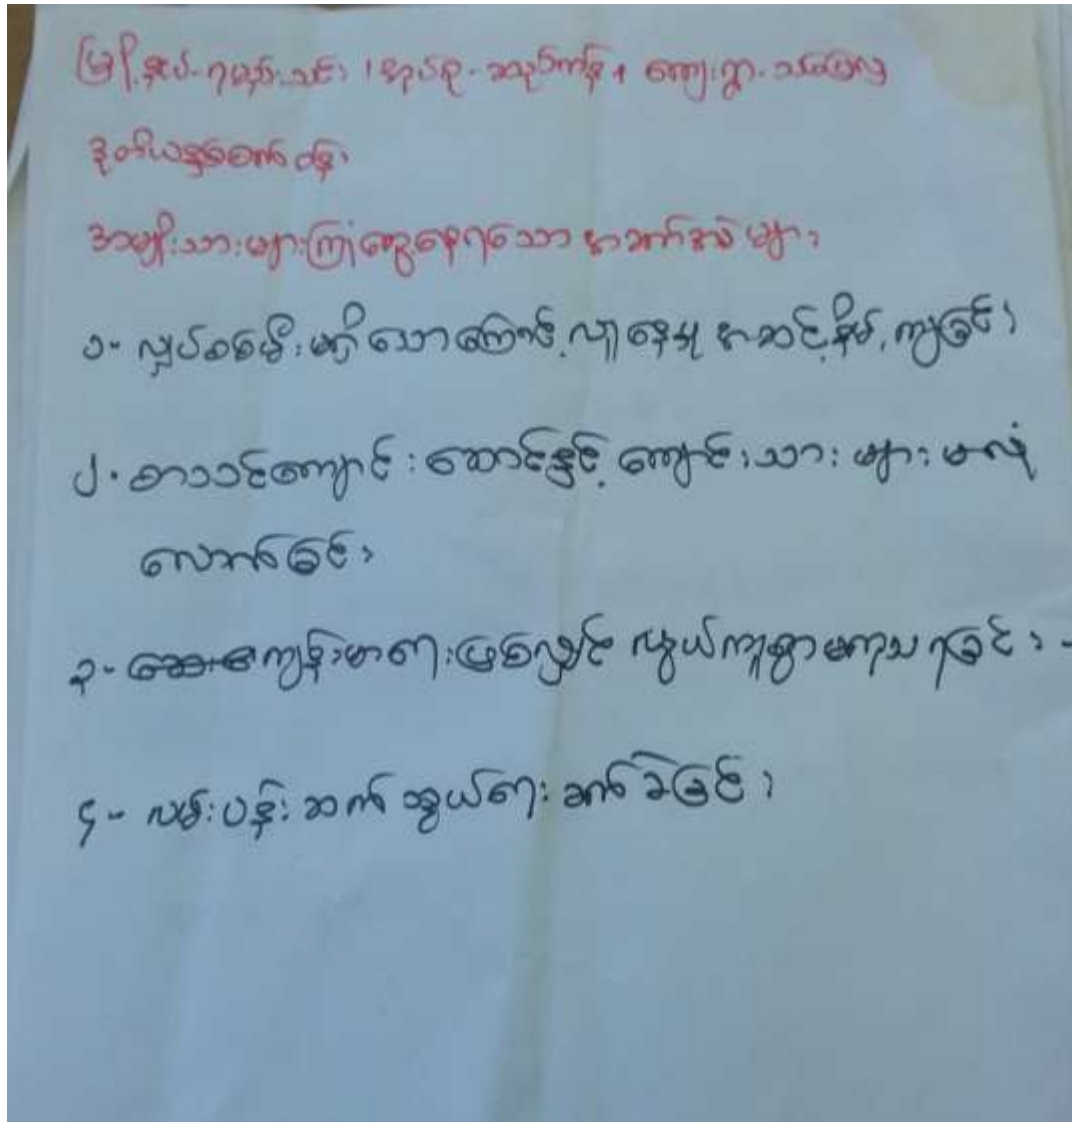 မြို့နယ်-ရမည်းသင်း ၊ အုပ်စု- ၊ ကျေးရွာ-
ဒုတိယနှစ်စက်ဝန်း
အမျိုးသားများကြုံတွေ့နေရသော အခက်အခဲများ
၁- လျှပ်စစ်မီးမရှိသောကြောင့် လူနေမှု အဆင့်နိမ့်ကျခြင်း
၂- စာသင်ကျောင်းဆောင်နှင့် ကျောင်းသားများ မလုံ
လောက်ခြင်း
၃- ကျန်းမာရေးဖြစ်လျှင် လွယ်ကူစွာမကုသရခြင်း -
၄- လမ်းပန်းဆက်သွယ်ရေး ခက်ခဲခြင်း